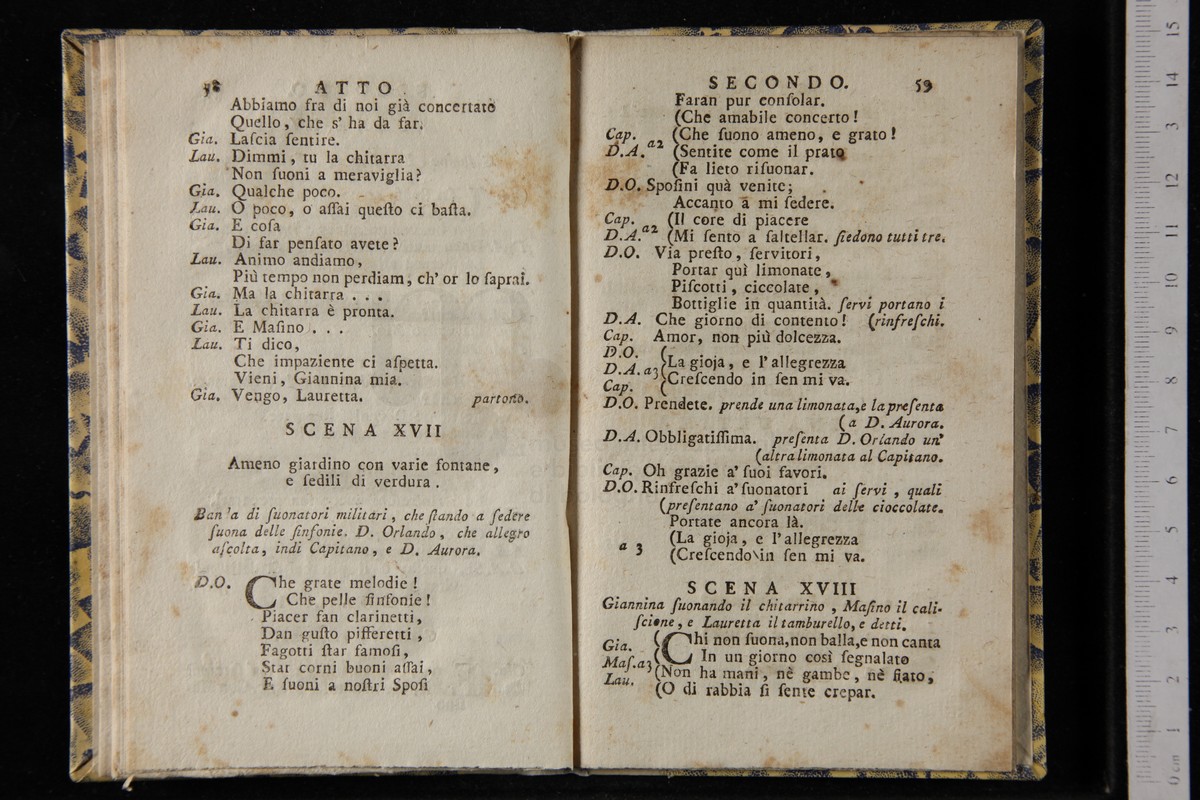 58 ATTO
Abbiamo fra di noi già concertatò
Quello, che s' ha da far.
Gia. Laſcia ſentire.
Lau. Dimmi, tu la chitarra
Non ſuoni a meraviglia?
Gia. Qualche poco.
Lau. O poco, o aſſai queſto ci baſta.
Gia. E coſa
Di far penſato avete?
Lau. Animo andiamo,
Più tempo non perdiam, ch' or lo ſaprai.
Gia. Ma la chitarra . . .
Lau. La chitarra è pronta.
Gia. E Maſino . . .
Lau. Ti dico,
Che impaziente ci aſpetta.
Vieni, Giannina mia.
Gia. Vengo, Lauretta. partono.
SCENA XVII
Ameno giardino con varie fontane,
e ſedili di verdura.
Banda di ſuonatori militari, che ſtando a ſedere
ſuona delle ſinfonie. D. Orlando, che allegro
aſcolta, indi Capitano, e D. Aurora.
D.O. Che grate melodie!
Che pelle ſinfonie!
Piacer fan clarinetti,
Dan guſto pifferetti,
Fagotti ſtar famoſi,
Star corni buoni aſſai,
E ſuoni a noſtri Spoſi
SECONDO. 59
Faran pur conſolar.
(Che amabile concerto!
Cap. (Che ſuono ameno, e grato!
D.A. a2 (Sentite come il prato
(Fa lieto riſuonar.
D.O. Spoſini quà venite;
Accanto a mi ſedere.
Cap. (Il core di piacere
D.A. a2 (Mi ſento a ſaltellar. ſiedono tutti tre.
D.O. Via preſto, ſervitori,
Portar quì limonate,
Piſcotti, ciccolate,
Bottiglie in quantità. ſervi portano i
D.A. Che giorno di contento! (rinfreſchi.
Cap. Amor, non più dolcezza.
D.O. (
D.A. a3 (La gioja, e l' allegrezza
Cap. (Creſcendo in ſen mi va.
D.O. Prendete. prende una limonata, e la preſenta
(a D. Aurora.
D.A. Obbligatiſſima. preſenta D. Orlando un'
(altra limonata al Capitano.
Cap. Oh grazie a' ſuoi favori.
D.O. Rinfreſchi a' ſuonatori ai ſervi, quali
(preſentano a' ſuonatori delle cioccolate.
Portate ancora là.
a 3 (La gioja, e l' allegrezza
(Creſcendo in ſen mi va.
SCENA XVIII
Giannina ſuonando il chitarrino, Maſino il cali-
ſcione, e Lauretta il tamburello, e detti.
Gia. (Chi non ſuona, non balla, e non canta
Maſ. a3 ( In un giorno così ſegnalato
Lau. (Non ha mani, nè gambe, nè fiato,
(O di rabbia ſi ſente crepar.
0 cm 1 2 3 4 5 6 7 8 9 10 11 12 13 14 15